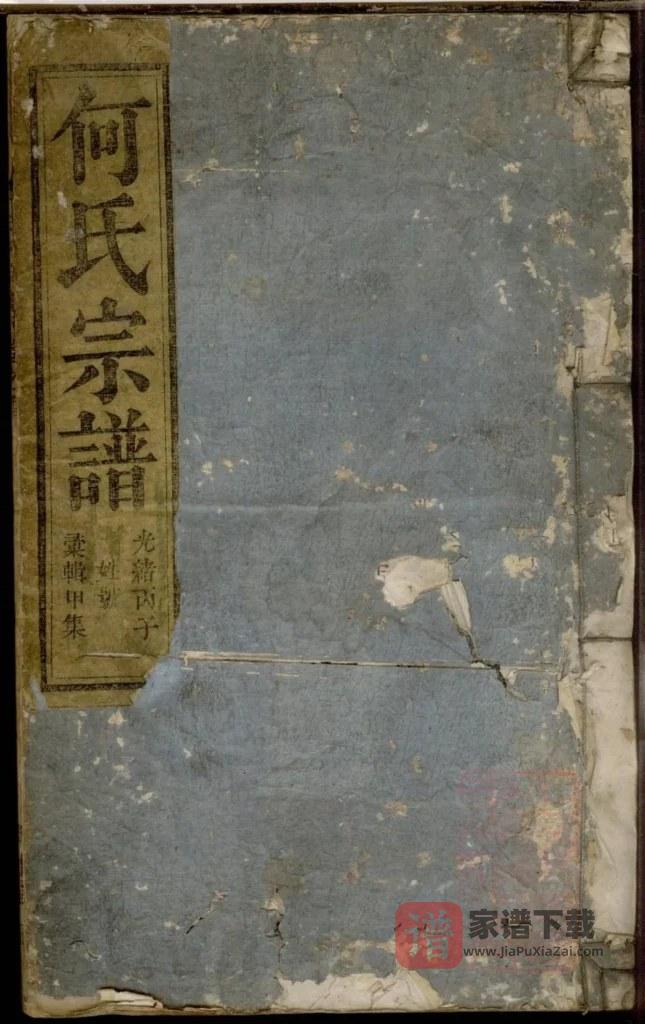 何氏宗譜
光緒丙子
彙輯甲集
譜
家谱下载
www.JiaPuXiaZai.com